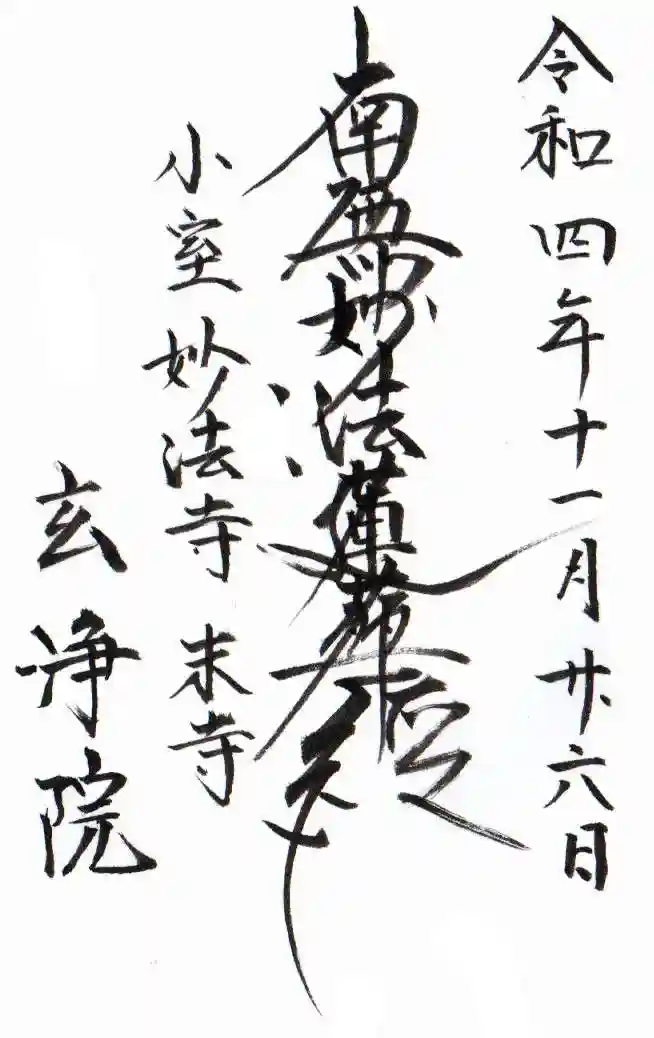 令和四年十一月廿六日
南無妙法蓮華経
小室妙法寺 末寺
玄浄院